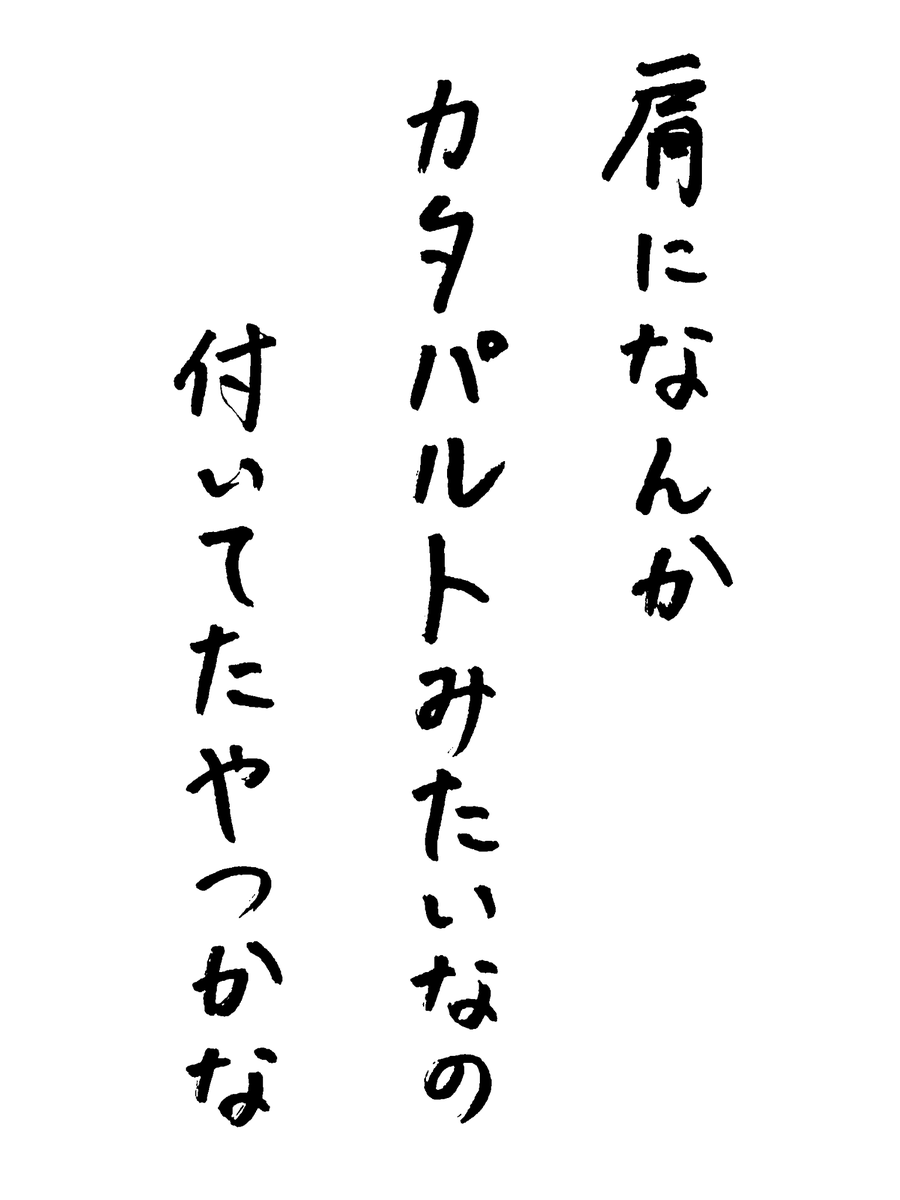 肩になんか
カタパルトみたいなの
付いてたやつかな